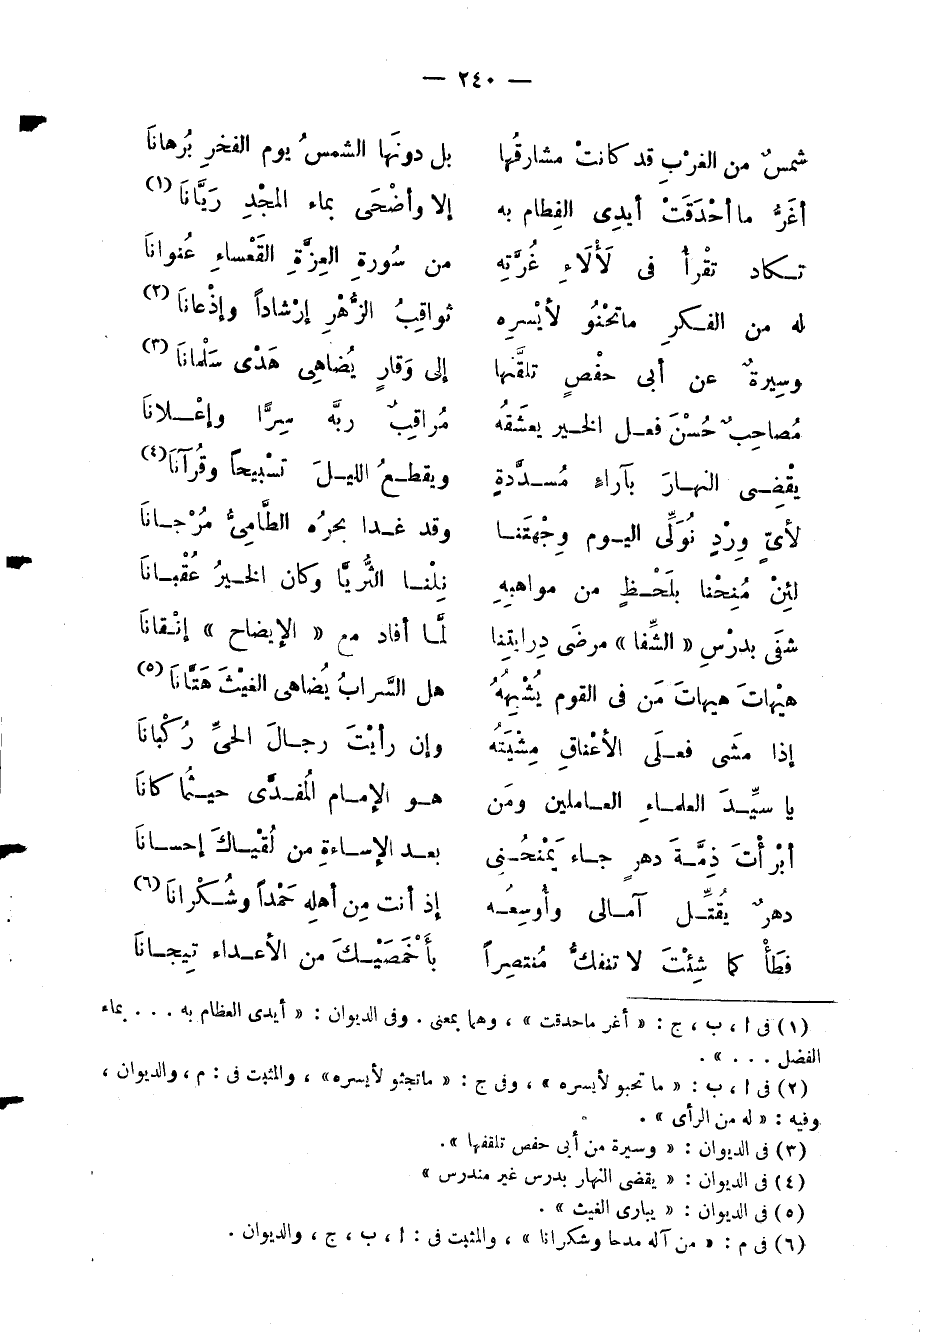 — ٢٤٠ —
شمسٌ من الغرْبِ قد كانتْ مشارقُها بل دونَها الشمسُ يوم الفخرِ بُرهانَا
أغَرُّ ما أحْدَقَتْ أيدِى الفِطام به إلا وأضْحَى بماء المجْدِ رَيَّانَا (١)
تـكاد تقْرأُ فى لَأْلَاءِ غُرَّتِه من سُورةِ العِزَّةِ القَعْساءِ عُنوانَا
له من الفـكرِ ماتحْنُو لأيْسرِه ثواقِبُ الزُّهْرِ إرْشاداً وإذْعانَا (٢)
وسِيرةٌ عن أبى حفْصٍ تلقَّنها إلى وَقارٍ يُضاهِى هَدْى سَلْمانَا (٣)
مُصاحِبٌ حُسْنَ فعـل الخـير يعشَقُه مُراقِبٌ ربَّه سِرًّا وإعْـلانَا
يقْضِـى النهـارَ بآراءٍ مُسـدَّدةٍ ويقطـعُ الليـلَ تسْبيحاً وقُرآنَا (٤)
لأىِّ وِرْدٍ نُوَلِّى اليـوم وِجْهتَنـا وقد غـدا بحرُه الطَّامِىُّ مُرْجـانَا
لئِنْ مُنِحْنا بلَحْـظٍ من مواهبِهِ نِلْنـا الثُّريَّا وكان الخـيرُ عُقْبـانَا
شفَى بدرْسِ « الشِّفا » مرضَى دِرايتِنا لمَّـا أفاد مع « الإيضاح » إتْقانَا
هيْهاتَ هيهاتَ مَن فى القوم يُشْبِهُهُ هل السَّرابُ يُضاهى الغيْثَ هَتَّانَا (٥)
إذا مشَى فعـلَى الأعْناقِ مِشْيَتُه وإن رأيْتَ رجـالَ الحىِّ رُكْبانَا
يا سيِّـدَ العلمـاءِ العـاملين ومَن هـو الإمـام المُفـدَّى حيـثُما كانَا
أبْرأْتَ ذِمَّـةَ دهرٍ جـاء يَمْنحُـنِى بعـد الإسـاءةِ من لُقْيـاكَ إحسـانَا
دهرٌ يُقتِّـل آمـالى وأُوسِعُـه إذ أنت مِن أهلِه حَمْداً وشُـكْرانَا (٦)
فطَأْ كما شِئْتَ لا تنفكُّ مُنتصِراً بأَخْمَصَيْـكَ من الأعـداء تِيجـانَا
(١) فى ا ، ب ، ج : « أغر ماحدقت » ، وهما بمعنى . وفى الديوان : « أيدى العظام به . . . بماء
الفضل . . . » .
(٢) فى ا ، ب : « ما تحبو لأيسره » ، وفى ج : « ماتجثو لأيسره» ، والمثبت فى : م ، والديوان ،
وفيه : « له من الرأى » .
(٣) فى الديوان : « وسيرة من أبى حفص تلقفها ».
(٤) فى الديوان : « يقضى النهار بدرس غير مندرس »
(٥) فى الديوان : « يبارى الغيث » .
(٦) فى م : « من آله مدحا وشكرانا » ، والمثبت فى : ا ، ب ، ج ، والديوان .